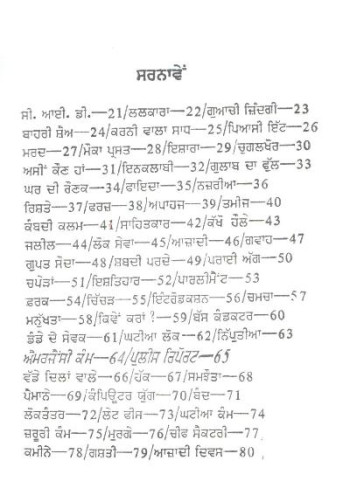 ਸਰਨਾਵੇਂ
ਸੀ. ਆਈ. ਡੀ.—21/ਲਲਕਾਰਾ—22/ਗੁਆਚੀ ਜ਼ਿੰਦਗੀ—23
ਬਾਹਰੀ ਸ਼ੋਅ—24/ਕਰਨੀ ਵਾਲਾ ਸਾਧ—25/ਪਿਆਸੀ ਇੱਟ—26
ਮਰਦ—27/ਮੌਕਾ ਪ੍ਰਸਤ—28/ਇਸ਼ਾਰਾ—29/ਚੁਗਲਖੋਰ—30
ਅਸੀਂ ਕੌਣ ਹਾਂ—31/ਇਨਕਲਾਬੀ—32/ਗੁਲਾਬ ਦਾ ਫੁੱਲ—33
ਘਰ ਦੀ ਰੌਣਕ—34/ਫਾਇਦਾ—35/ਨਜ਼ਰੀਆ—36
ਰਿਸ਼ਤੇ—37/ਫਰਜ਼—38/ਅਪਾਹਜ—39/ਤਮੀਜ—40
ਕੰਬਦੀ ਕਲਮ—41/ਸਾਹਿਤਕਾਰ—42/ਕੱਖੋ ਹੌਲੇ—43
ਜਲੀਲ—44/ਲੋਕ ਸੇਵਾ—45/ਆਜ਼ਾਦੀ—46/ਗਵਾਹ—47
ਗੁਪਤ ਸੌਦਾ—48/ਸ਼ਬਦੀ ਪਰਦੇ—49/ਪਰਾਈ ਅੱਗ—50
ਚਪੇੜਾਂ—51/ਇਸ਼ਤਿਹਾਰ—52/ਪਾਰਲੀਮੈਂਟ—53
ਫਰਕ—54/ਚਿੱਕੜ—55/ਇੰਟਰੋਡਕਸ਼ਨ—56/ਚਮਚਾ—57
ਮਨੁੱਖਤਾ—58/ਕਿਵੇਂ ਕਰਾਂ ?—59/ਬੱਸ ਕੰਡਕਟਰ—60
ਡੰਡੇ ਦੇ ਸੇਵਕ—61/ਘਟੀਆ ਲੋਕ—62/ਨਿੱਪੁਤੀਆ—63
ਐਮਰਜੈਂਸੀ ਕੰਮ—64/ਪੁਲੀਸ ਰਿਪੋਰਟ—65
ਵੱਡੇ ਦਿਲਾਂ ਵਾਲੇ—66/ਹੱਕ—67/ਸਮਝੌਤਾ—68
ਪੈਮਾਨੇ—69/ਕੰਪਿਊਟਰ ਯੁੱਗ—70/ਬੰਦ—71
ਲੋਕਤੰਤਰ—72/ਲੇਟ ਫੀਸ—73/ਘਟੀਆ ਕੰਮ—74
ਜ਼ਰੂਰੀ ਕੰਮ—75/ਮੁਰਗੇ—76/ਚੀਫ ਸੈਕਟਰੀ—77
ਕਮੀਨੇ—78/ਗਸ਼ਤੀ—79/ਆਜ਼ਾਦੀ ਦਿਵਸ—80